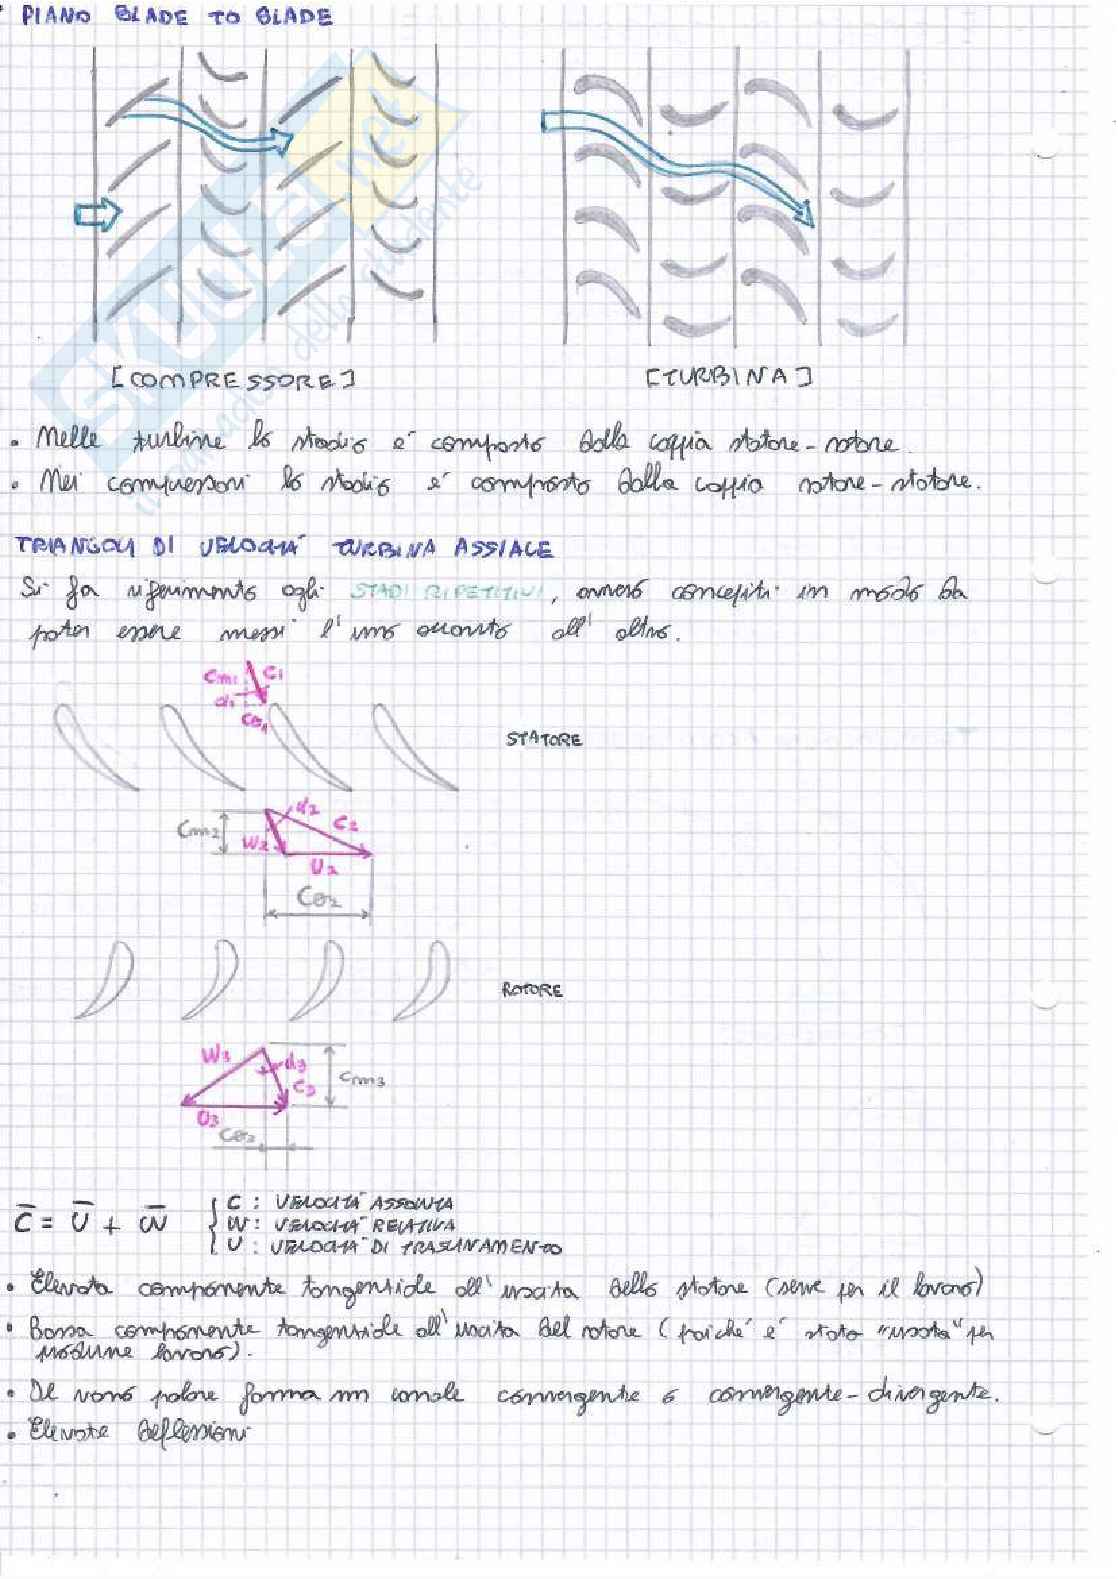 PIANO BLADE TO BLADE
[COMPRESSORE]
[TURBINA]
• Nelle turbine lo stadio è composto dalla coppia statore-rotore.
• Nei compressori lo stadio è composto dalla coppia rotore-statore.
TRIANGOLI DI VELOCITÀ TURBINA ASSIALE
Si fa riferimento agli STADI RIPETITIVI, ovvero concepiti in modo da
poter essere messi l'uno accanto all'altro.
Cm1 C1
α1
Cθ1
STATORE
α2
Cm2 W2 C2
U2
Cθ2
ROTORE
W3 α3
C3 Cm3
U3
Cθ3
C = U + W
C: VELOCITÀ ASSOLUTA
W: VELOCITÀ RELATIVA
U: VELOCITÀ DI TRASCINAMENTO
• Elevata componente tangenziale all'uscita dello statore (serve per il lavoro)
• Bassa componente tangenziale all'uscita del rotore (poiché è stata "usata" per
produrre lavoro).
• Il vano palare forma un canale convergente o convergente-divergente.
• Elevate deflessioni
SKUOLA.net